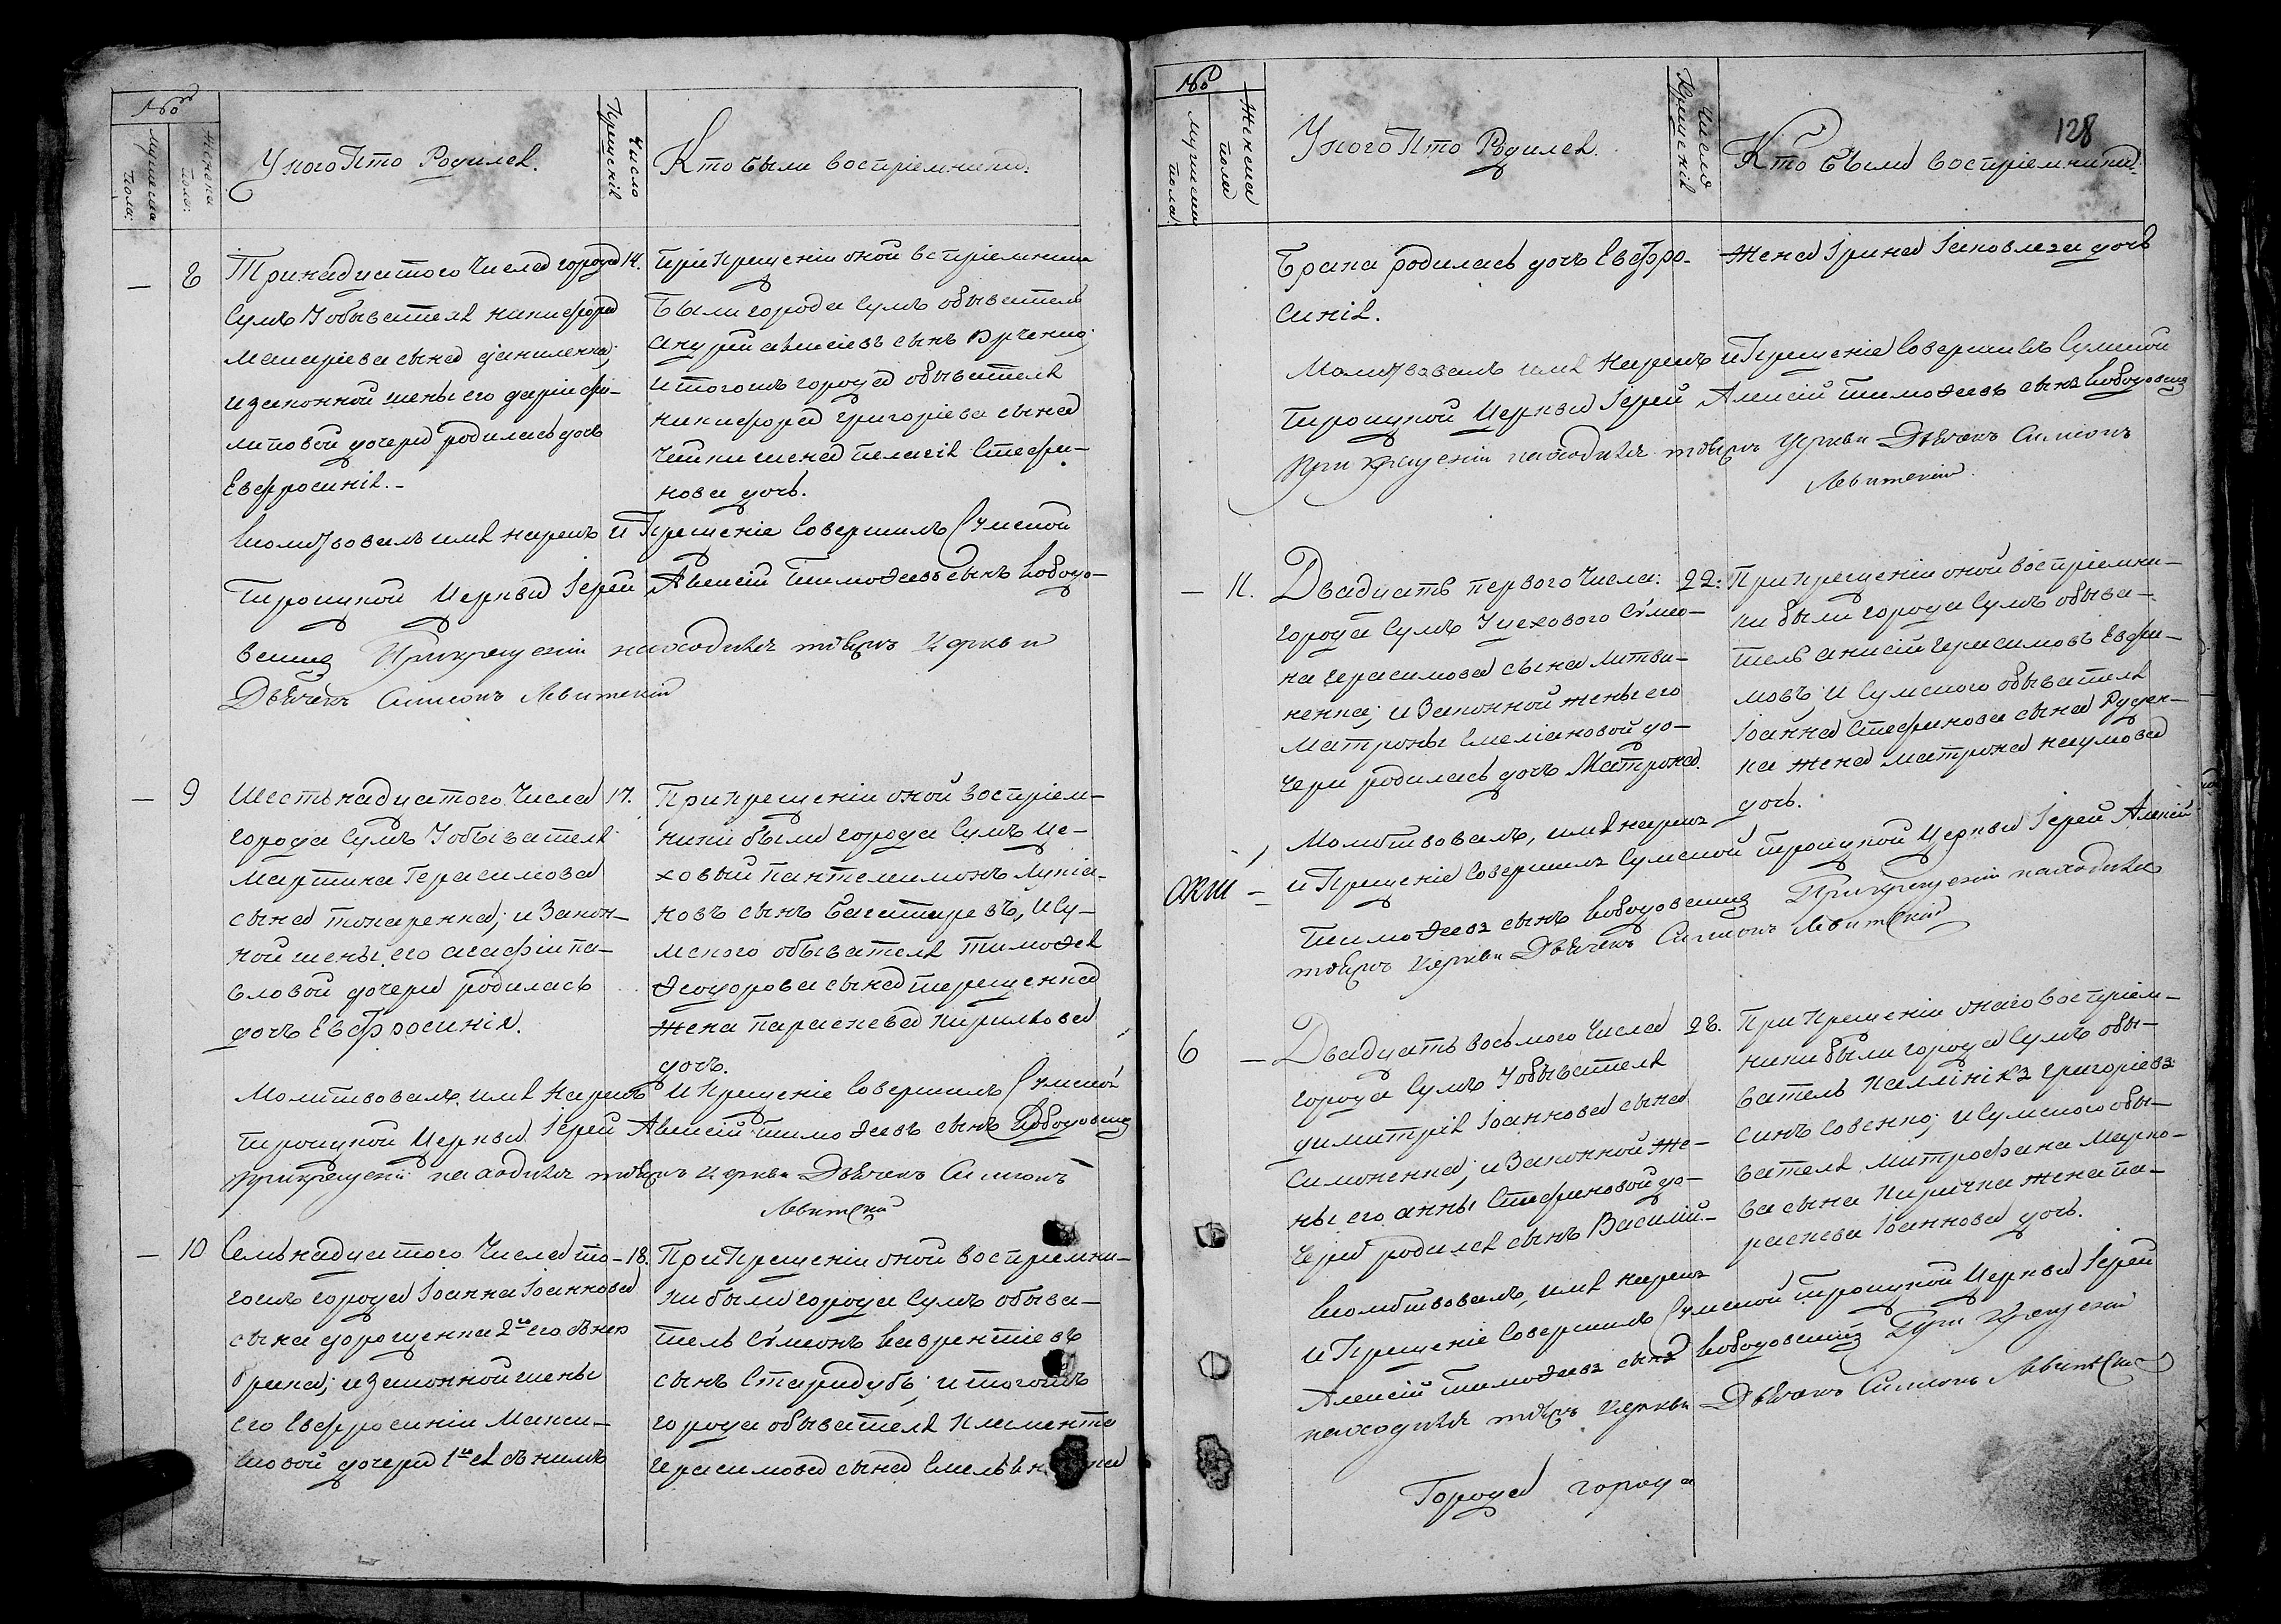 №
Мужеска пола:
Женска пола:
У кого Кто Родился.
Число Крещенія
Кто были воспріемники.
— 8 Тринадцатого Числа города
Сумъ У обывателя никифора
макаріева сына даниленка;
и законной жены его даріи фи-
липовой дочери родилась дочь
Евфросинія.-
14. При Крещеніи оной воспріемники
были города Сумъ обыватель
сынъ
и тогожъ города обывателя
никифора григоріева сына
жена пелагія Стефа-
нова дочь.
Молитвовалъ имя нарекъ и Крещеніе Совершилъ Сумской
Троицкой Церкви Іерей Алексій Тимоѳеевъ сынъ
При крещеніи находился тоя церкви
Дьячекъ Симіонъ Левитскій
— 9 Шестьнадцатого Числа
города Сумъ У обывателя
Мартина Герасимова
сына токаренка; и Закон-
ной жены его агафіи па-
вловой дочери родилась
дочь Евфросинія.
17. При Крещеніи оной воспріем-
ники были города Сумъ це-
ховый пантелимонъ Лукіа-
новъ сынъ Багатиревъ, и Су-
мского обывателя Тимоѳея
Ѳеодорова сына терещенка
жена параскева Кирилова
дочь.
Молитвовалъ имя Нарекъ и Крещеніе Совершилъ Сумской
Троицкой Церкви Іерей Алексій Тимоѳеевъ сынъ
При крещеніи находился церкви Дьячекъ Симіонъ
Левитскій
— 10 Семьнадцатого Числа то-
гожъ города Іоанна Іоаннова
сына дорошенка 2го его съ нею
брака; и законной жены
его Евфросиніи Макси-
мовой дочери 1го ея съ нимъ
18. При Крещеніи оной воспріемни-
ки были города Сумъ обыва-
тель Сумеонъ Лаврентіевъ
сынъ Стародубъ; и тогожъ
города обывателя Климента
Герасимова сына
128
№
Мужеска пола:
Женска пола
У кого Кто Родился.
Число Крещенія
Кто были воспріемники.
Брака родилась дочь Евфро-
синія.
Жена Ірина Іаковлева дочь
Молитвовалъ имя Нарекъ и Крещеніе Совершилъ Сумской
Троицкой Церкви Іерей Алексій Тимоѳеевъ сынъ
При крещеніи находился церкви Дьячекъ Симіонъ
Левитскій.
— 11. Двадцать первого Числа:
города Сумъ У цехового Сумео-
на Герасимова сына Литви-
ненка; и Законной жены его
Матроны Емеліановой до-
чери родилась дочь Матрона.
22. При Крещеніи оной воспріемни-
ки были города Сумъ обыва-
тель Герасимовъ Евфи-
мовъ; и Сумского обывателя
Іоанна Стефанова сына Руден-
ка жена матрона наумова
дочь.
Молитвовалъ, имя нарекъ
и Крещеніе Совершилъ Сумской Троицкой Церкви Іерей Алексій
Тимоѳеевъ сынъ При крещеніи находился
церкви Дьячекъ Симіонъ Левитскій
6 — Двадцать восьмого Числа
города Сумъ У обывателя
димитрія Іоаннова сына
Симоненка; и Законной Же-
ны его анны Стефановой до-
чери родился сынъ Василій.-
28. При Крещеніи онаго воспріем-
ники были города Сумъ обы-
ватель Каллиникъ Григоріевъ
синъ Совенко; и Сумского обы-
вателя Митрофана Марко-
ва сына Киричка жена па-
раскева Іоаннова дочь.
Молитвовалъ, имя нарекъ
и Крещеніе Совершилъ Сумской Троицкой Церкви Іерей
Алексій Тимоѳеевъ сынъ При крещеніи
находился церкви Дьячекъ Симіонъ Левитскій
Города города